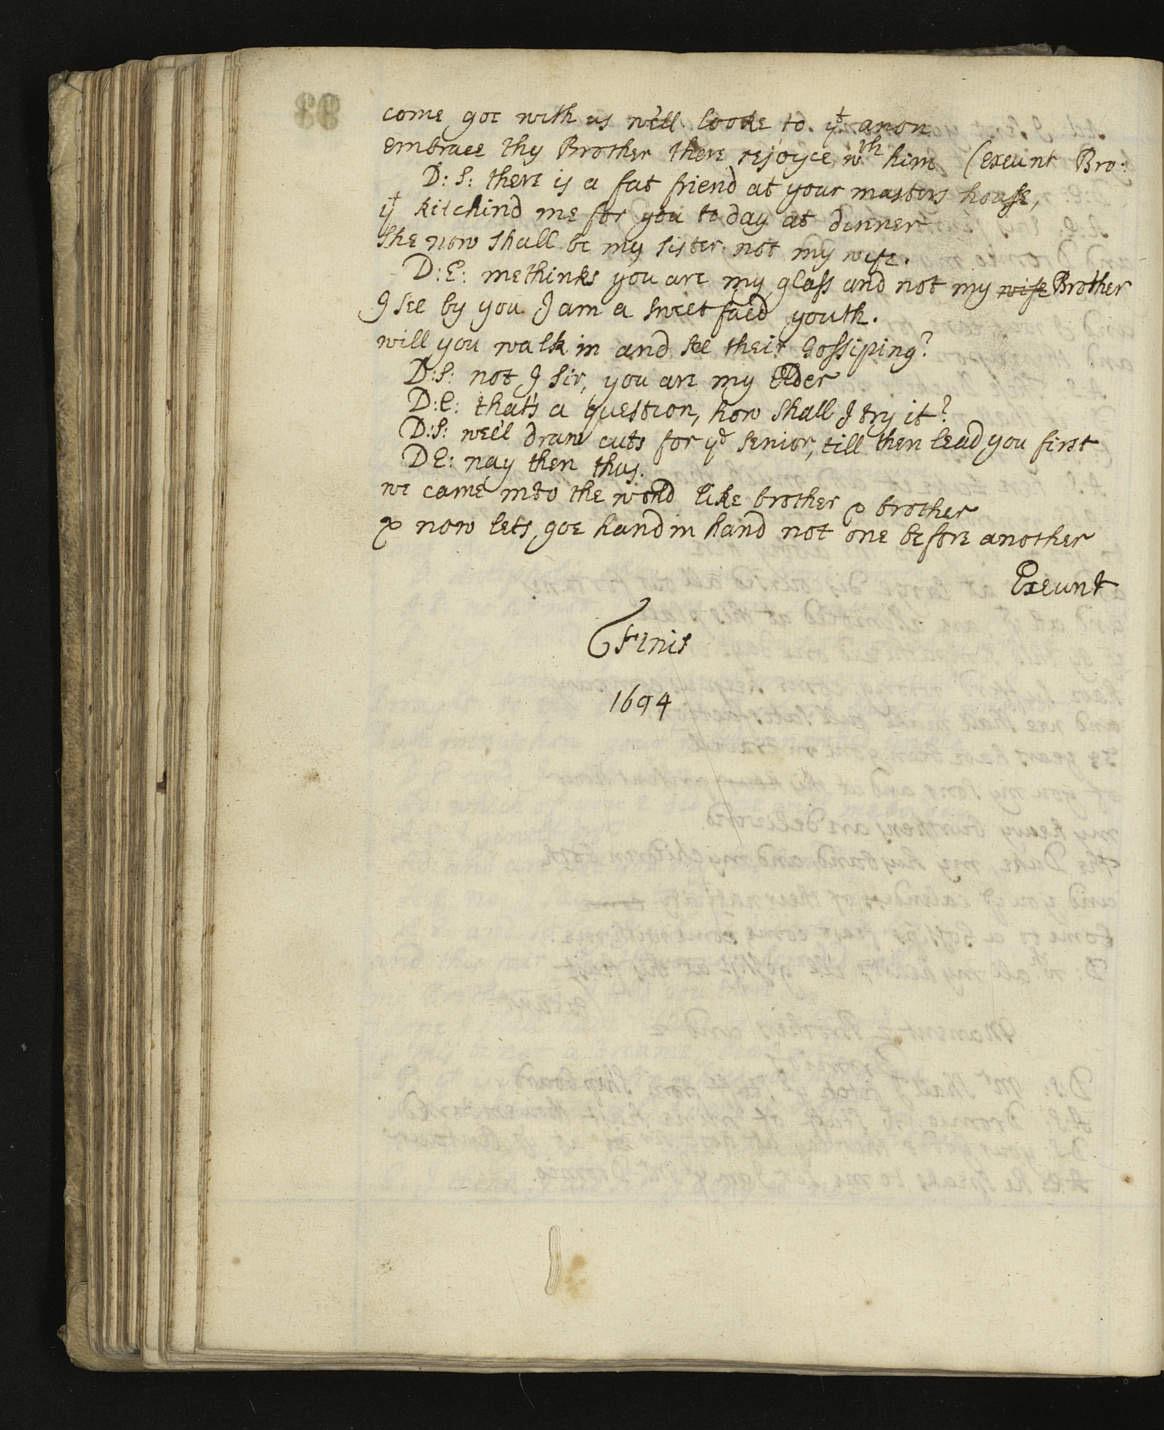 come goe with us we'll looke to. yt anon
embrace thy Brother there rejoyce wth him (exeunt Bro:
D: S: there is a fat friend at your masters house,
yt kitchind me for you to day at dinner
she now shall be my sister not my wife.
D: E: methinks you are my glass and not my wife Brother
I see by you I am a sweet faced youth.
will you walk in and see their Gossiping?
D: S: not I Sir, you are my Elder
D: E: that's a question, how shall I try it?
D: S: wee'l draw cuts for ye Senior, till then lead you first
D E: nay then thus.
we came into the world like brother & brother
& now lets goe hand in hand not one before another
Exeunt
Finis
1694